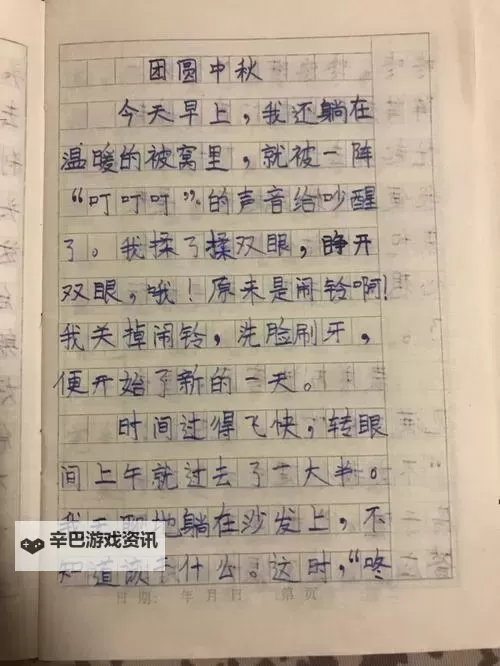 团圆中秋
今天早上，我还躺在
温暖的被窝里，就被一阵
“叮叮叮”的声音给吵醒
了。我揉了揉双眼，睁开
双眼，哦！原来是闹铃啊！
我关掉闹铃，洗脸刷牙，
便开始了新的一天。
时间过得飞快，转眼
间上午就过去了一大半。
我无聊地躺在沙发上，不
知道该干什么。这时，“咚
日期： 年 月 日 第 页
辛巴游戏资讯